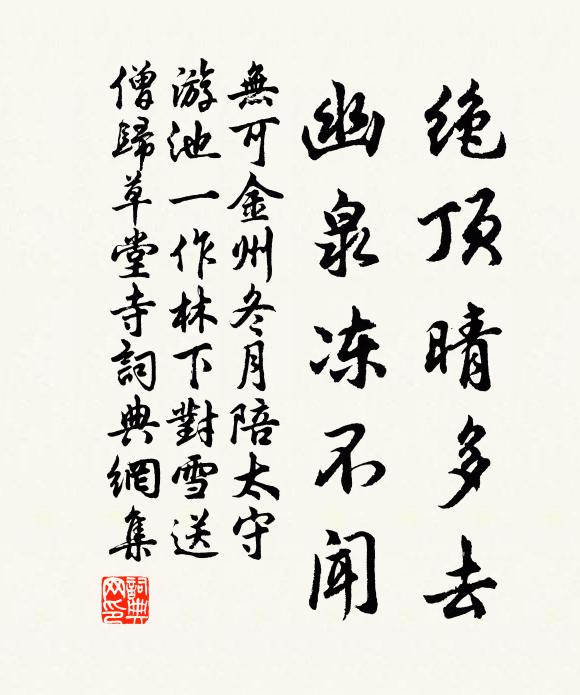 绝顶晴多去
幽泉冻不闻
無可金州冬月陪太守
游池一作林下對雪送
僧歸草堂寺詞典網集
詞典网印